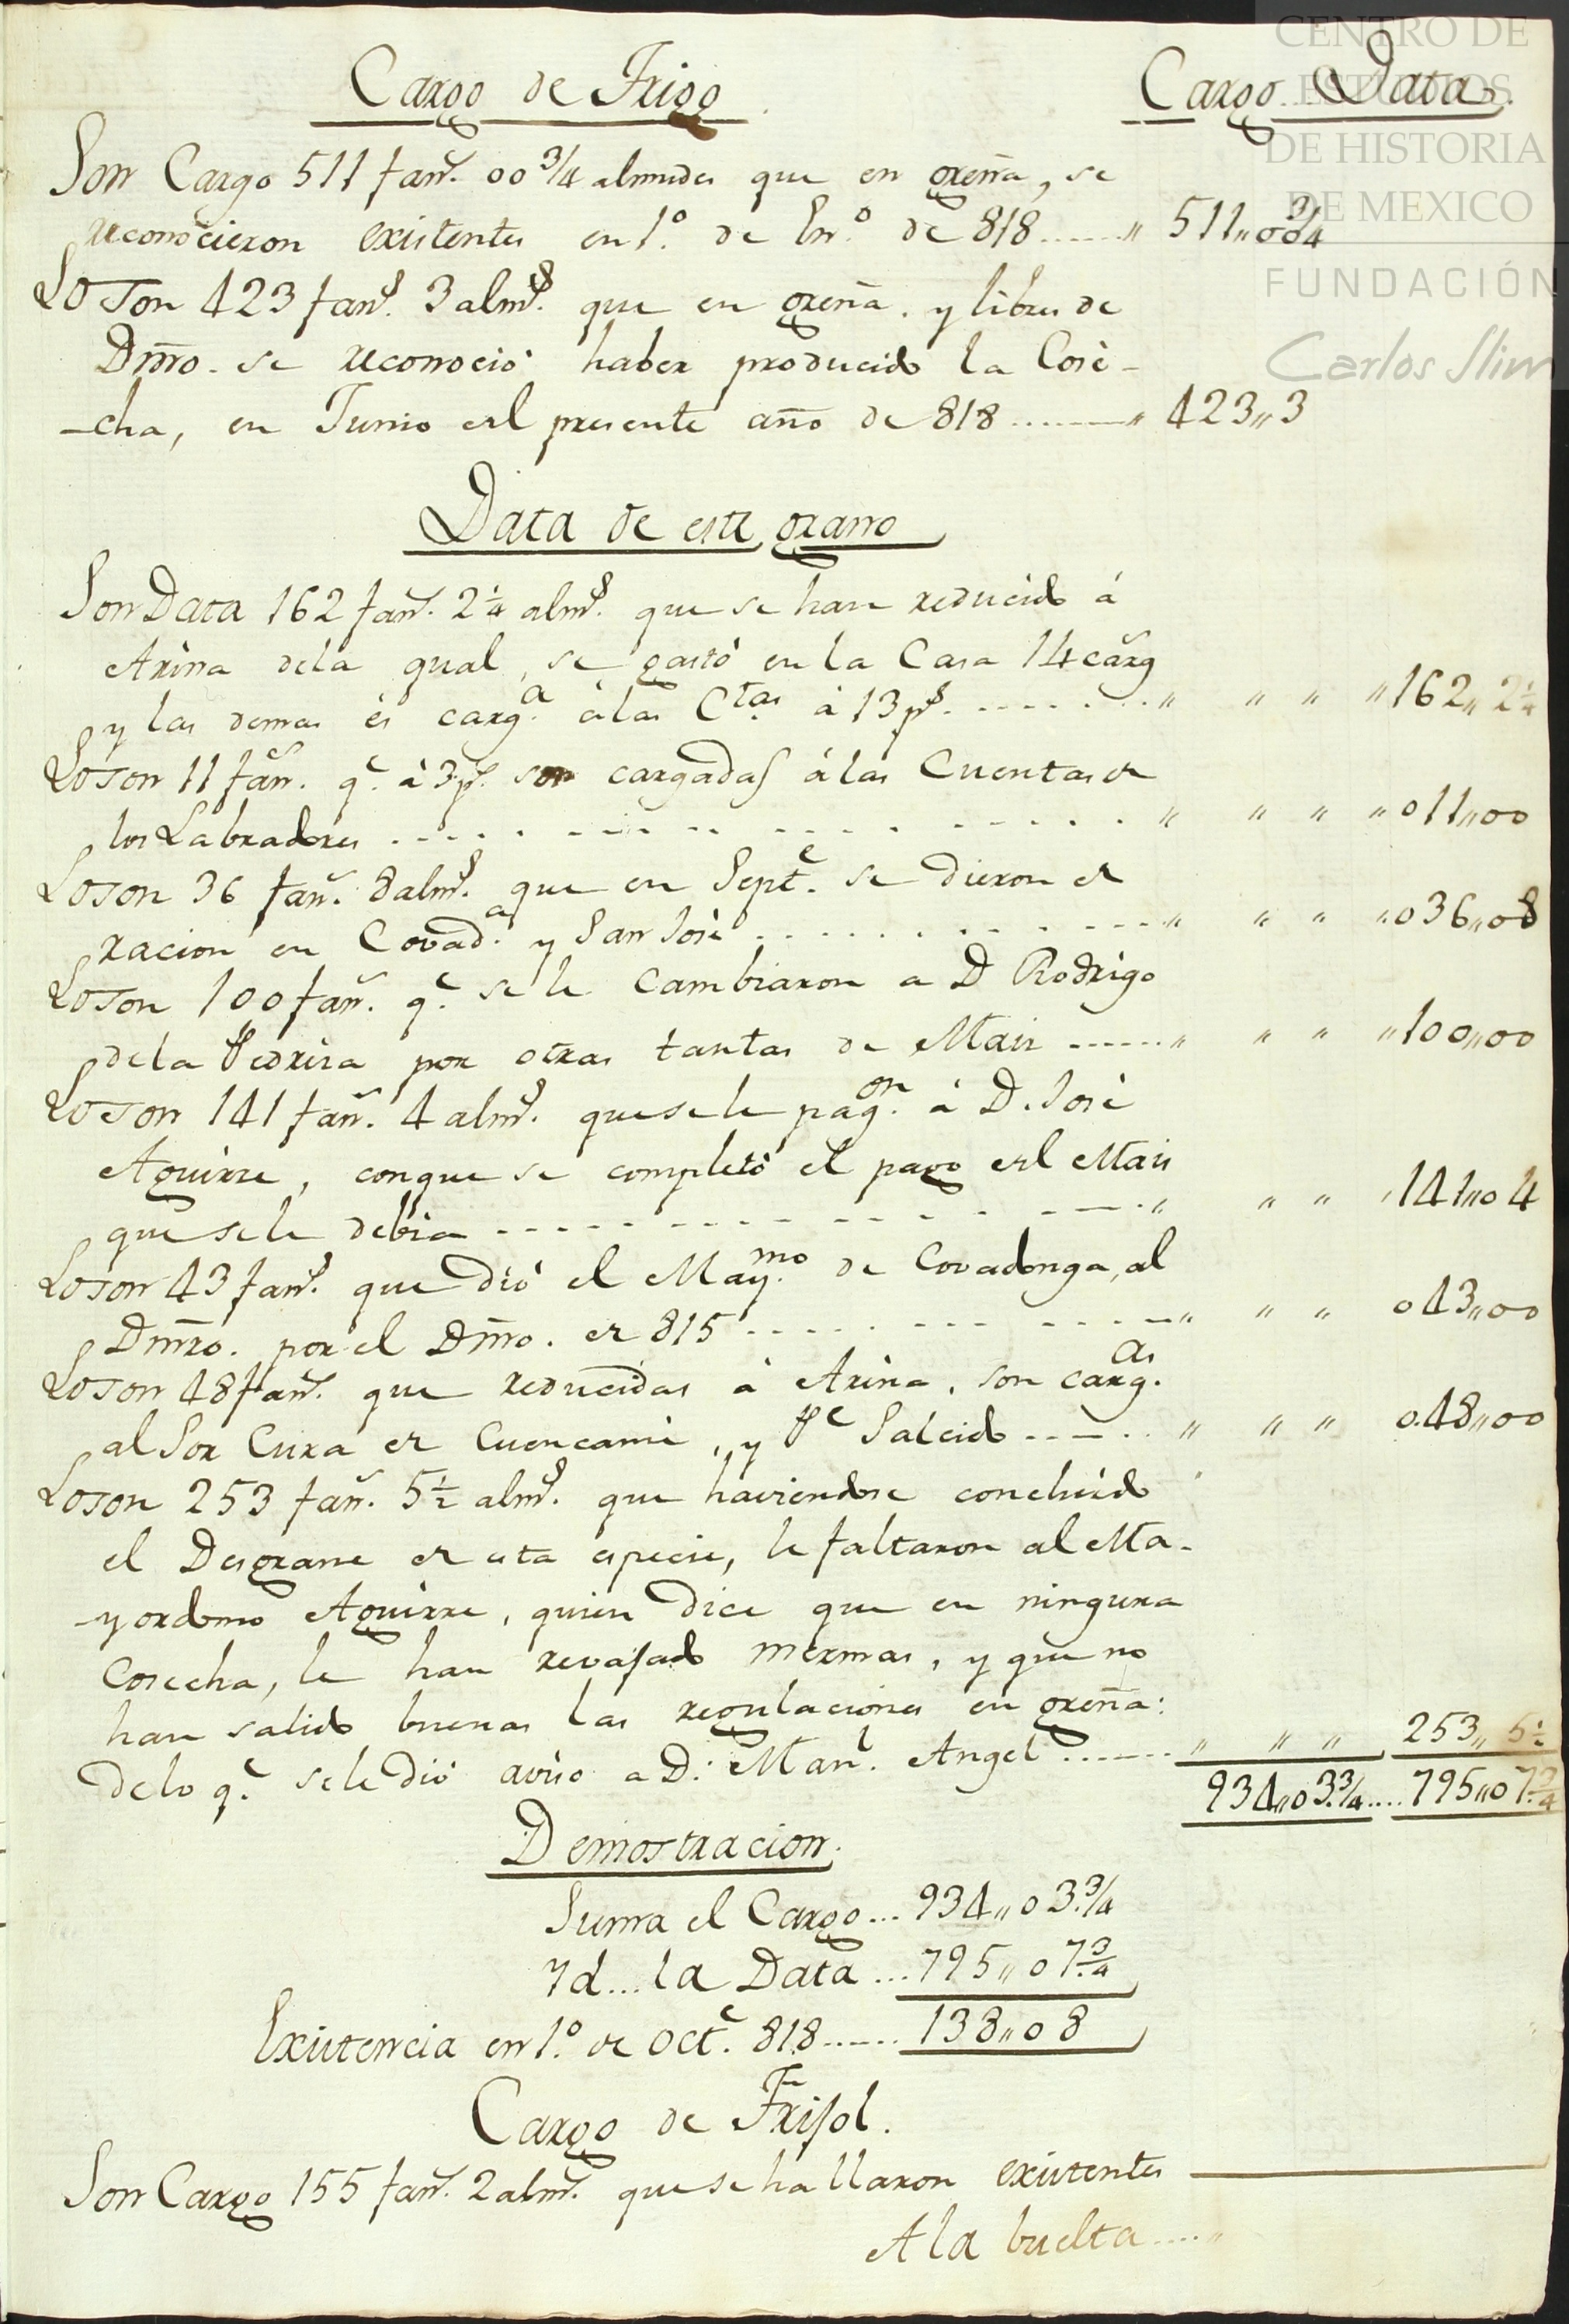 CENTRO DE
ESTUDIOS
DE HISTORIA
DE MEXICO
FUNDACIÓN
Carlos Slim
Cargo de Trigo. Cargo Data.
Son Cargo 511 fans. 00 3/4 almudes que en greña, se
reconocieron existentes en 1.º de En.º de 818 ...... „ 511„00 3/4
Lo son 423 fans. 3 alms. que en greña. y libres de
Dmo. se reconoció haber producido la Cose-
-cha, en Junio del presente año de 818 ........ „ 423„3
Data de este grano
Son Data 162 fans. 2 1/4 alms. que se han reducido á
Arina dela qual, se gastó en la Casa 14 carg
y las demas es carg.a á las C.tas á 13 ps. ........ „ „ „ „ 162„ 2 1/4
Lo son 11 fan. q.e á 3 ps. son cargadas á las Cuentas de
los Labradores ........ „ „ „ „ 011„00
Lo son 36 fan. 8 alms. que en Sept.e se dieron de
racion en Covad.a y San José ........ „ „ „ „ 036„08
Lo son 100 fan. q.e se le Cambiaron a D Rodrigo
dela Pedrisa por otras tantas de Mais ...... „ „ „ „ 100„00
Lo son 141 fan. 4 alms. que se le pag.on á D. José
Aguirre, conque se completó el pago del Mais
que se le debia ........ „ „ „ „ 141„04
Lo son 43 fans. que dió el May.mo de Covadonga, al
Dmro. por el Dmo. de 815 ........ „ „ „ 043„00
Lo son 48 fans. que reducidas á Arina, son carg.as
al Sor Cura de Cuencamé, y P.e Salcido ...... „ „ „ 048„00
Lo son 253 fan. 5 1/2 alms. que haviendose concluido
el Desgrane de esta especie, le faltaron al Ma-
-yordomo Aguirre, quien dice que en ninguna
Cosecha, le han revajado mermas, y que no
han salido buenas las regulaciones en greña:
delo q.e sele dió aviso a D. Man.l Angel ...... „ „ „ 253„ 5 1/2
934„03.3/4 .... 795„07.3/4
Demostracion.
Suma el Cargo ... 934„03.3/4
Yd ... la Data ... 795„07.3/4
Existencia en 1.º de Oct.e 818 ...... 138„08
Cargo de Frisol.
Son Cargo 155 fans. 2 alms. que se hallaron existentes
A la buelta .... „